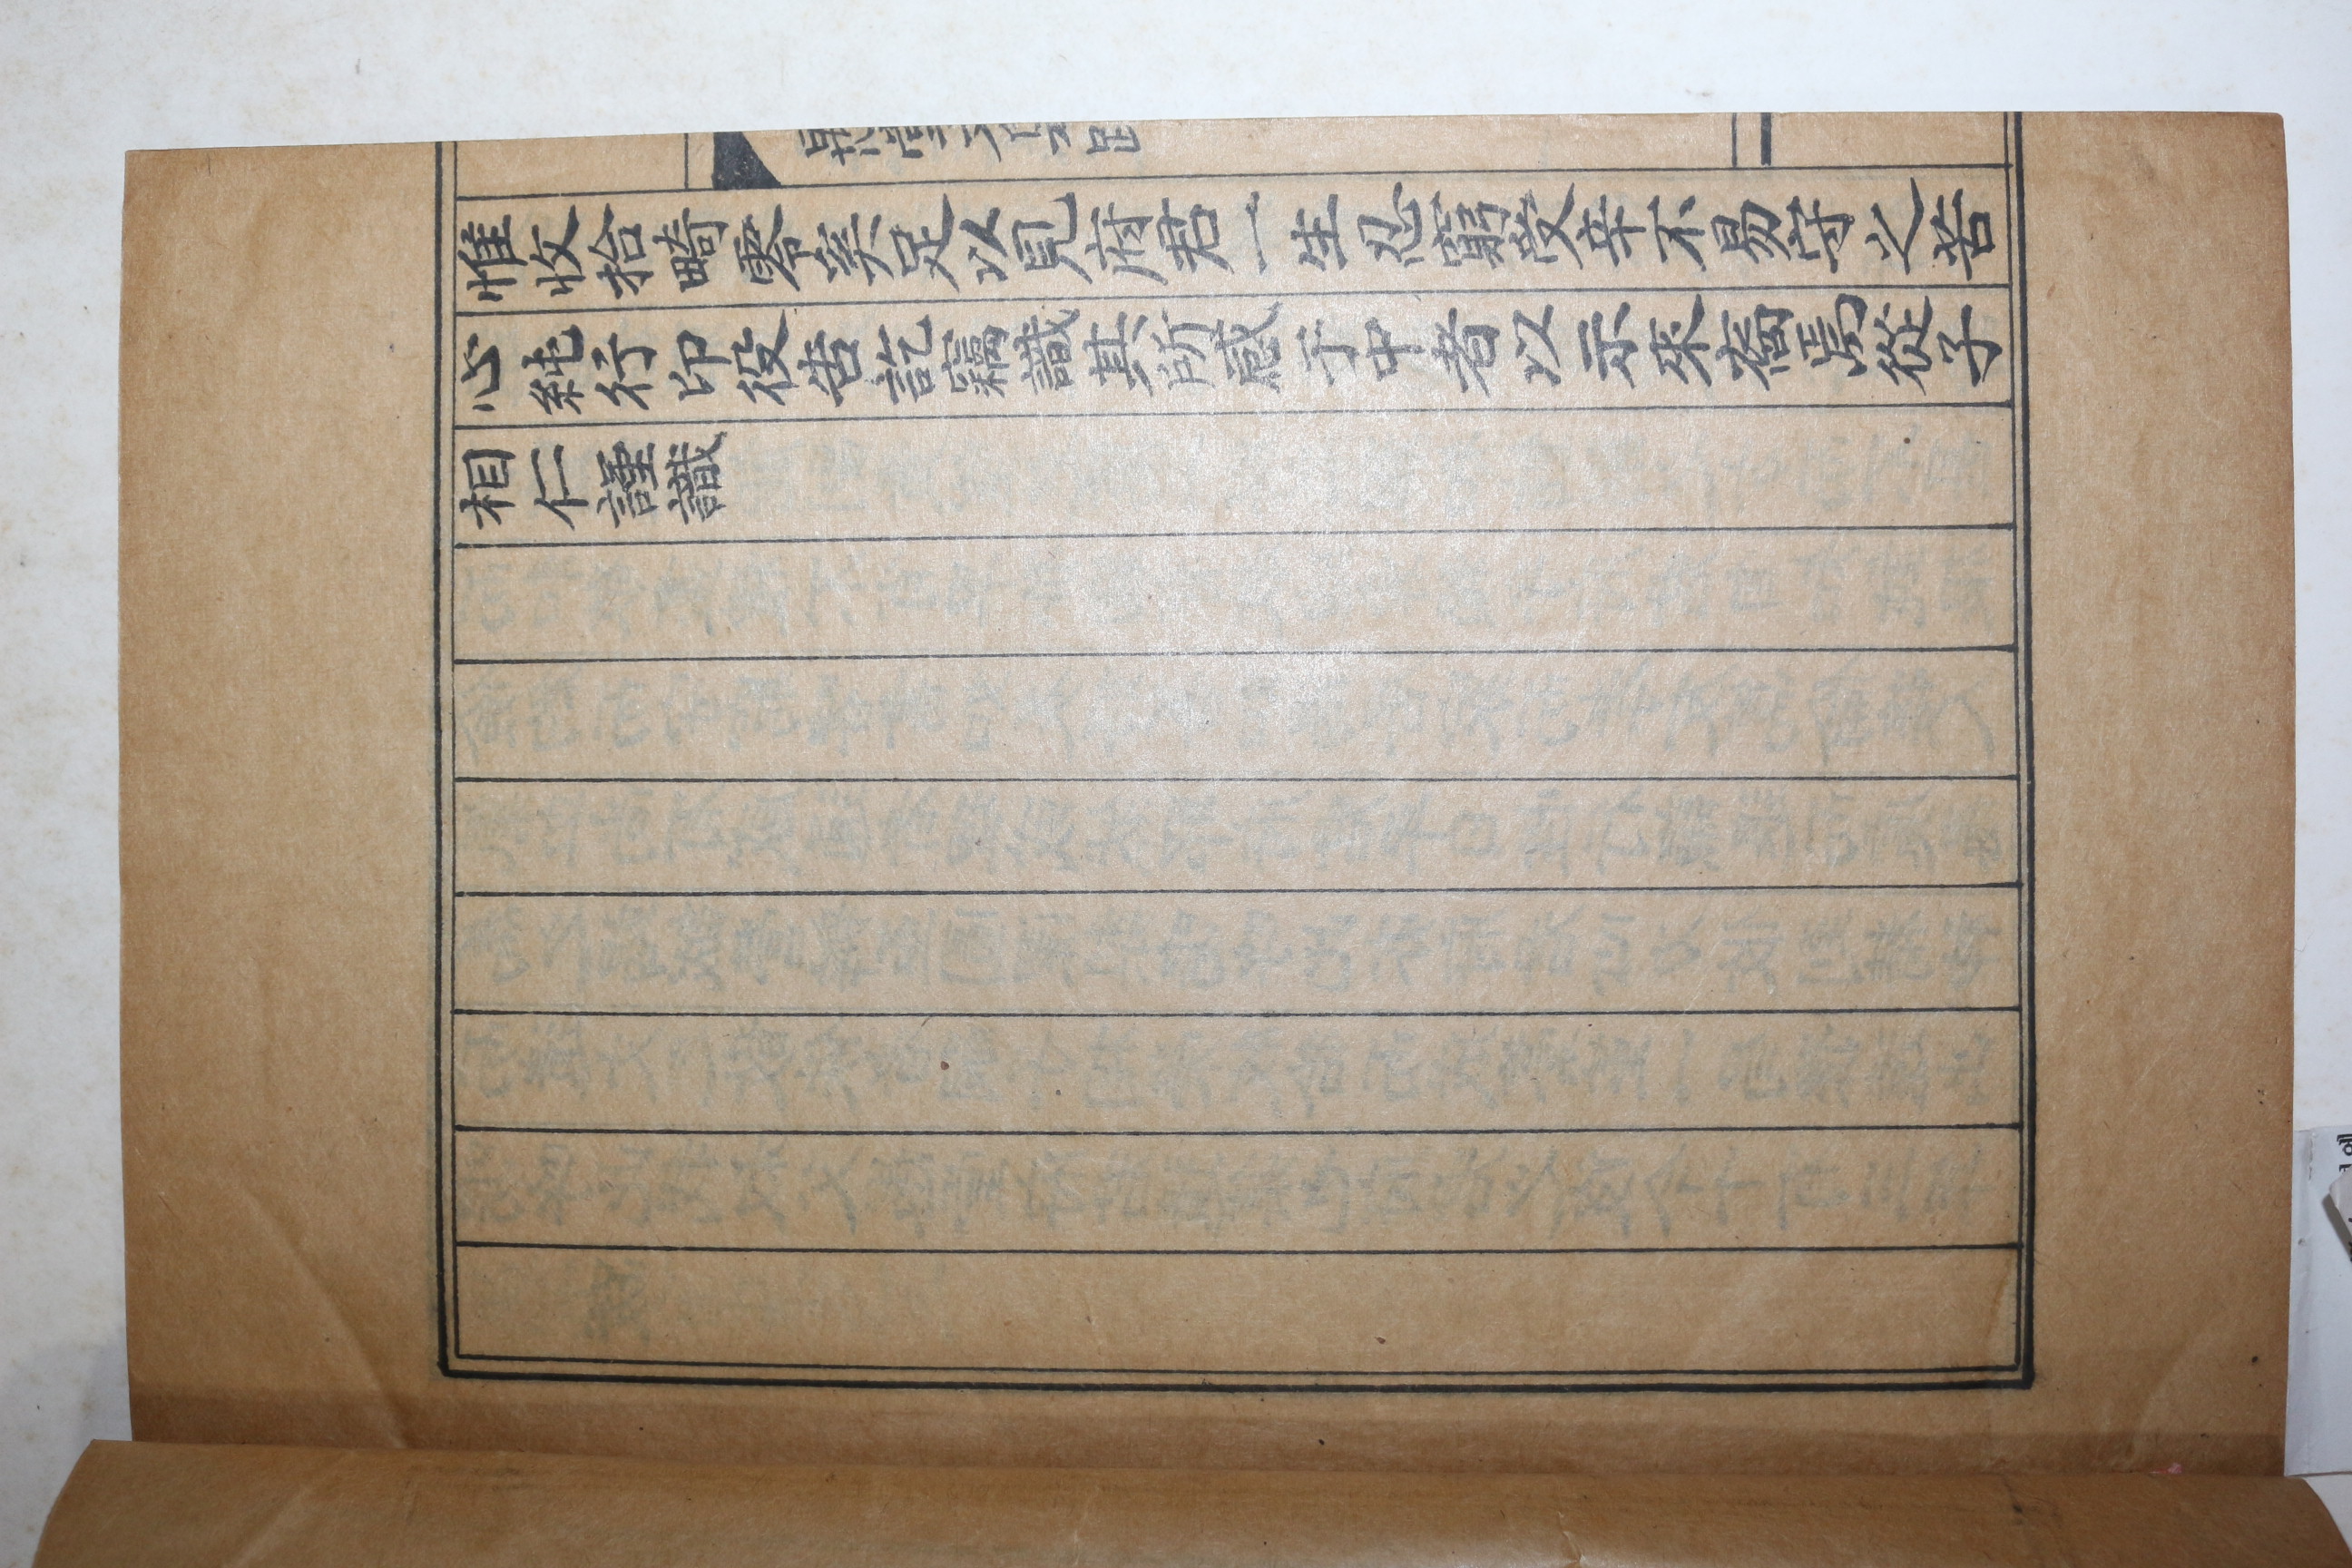 惟收拾畸零矣足以見府君一生忍窮受辛不易守之苦
心純行印役告訖竊識其所感于中者以示來裔焉從子
相仁謹識
堂文集跋